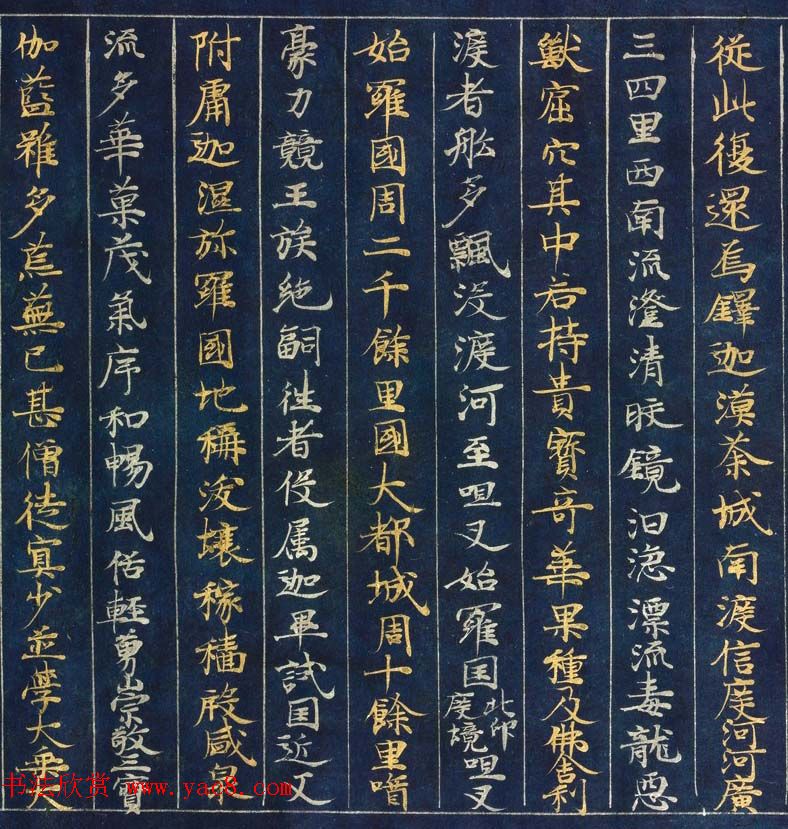 從此復還烏鐸迦漢荼城南渡信度河河廣
三四里西南流澄清皎鏡汩淴漂流毒龍惡
獸窟穴其中若持貴寶奇華果種及佛舍利
渡者舩多飄没渡河至呾叉始羅国北印度境呾叉
始羅國周二千餘里國大都城周十餘里酋
豪力競王族絶嗣往者役属迦畢試国近又
附庸迦濕弥羅國地稱沃壤稼穡殷盛泉
流多華菓茂氣序和暢風俗輕勇崇敬三寶
伽藍雖多荒蕪已甚僧徒寡少並學大乘
书法欣赏 www.yac8.com